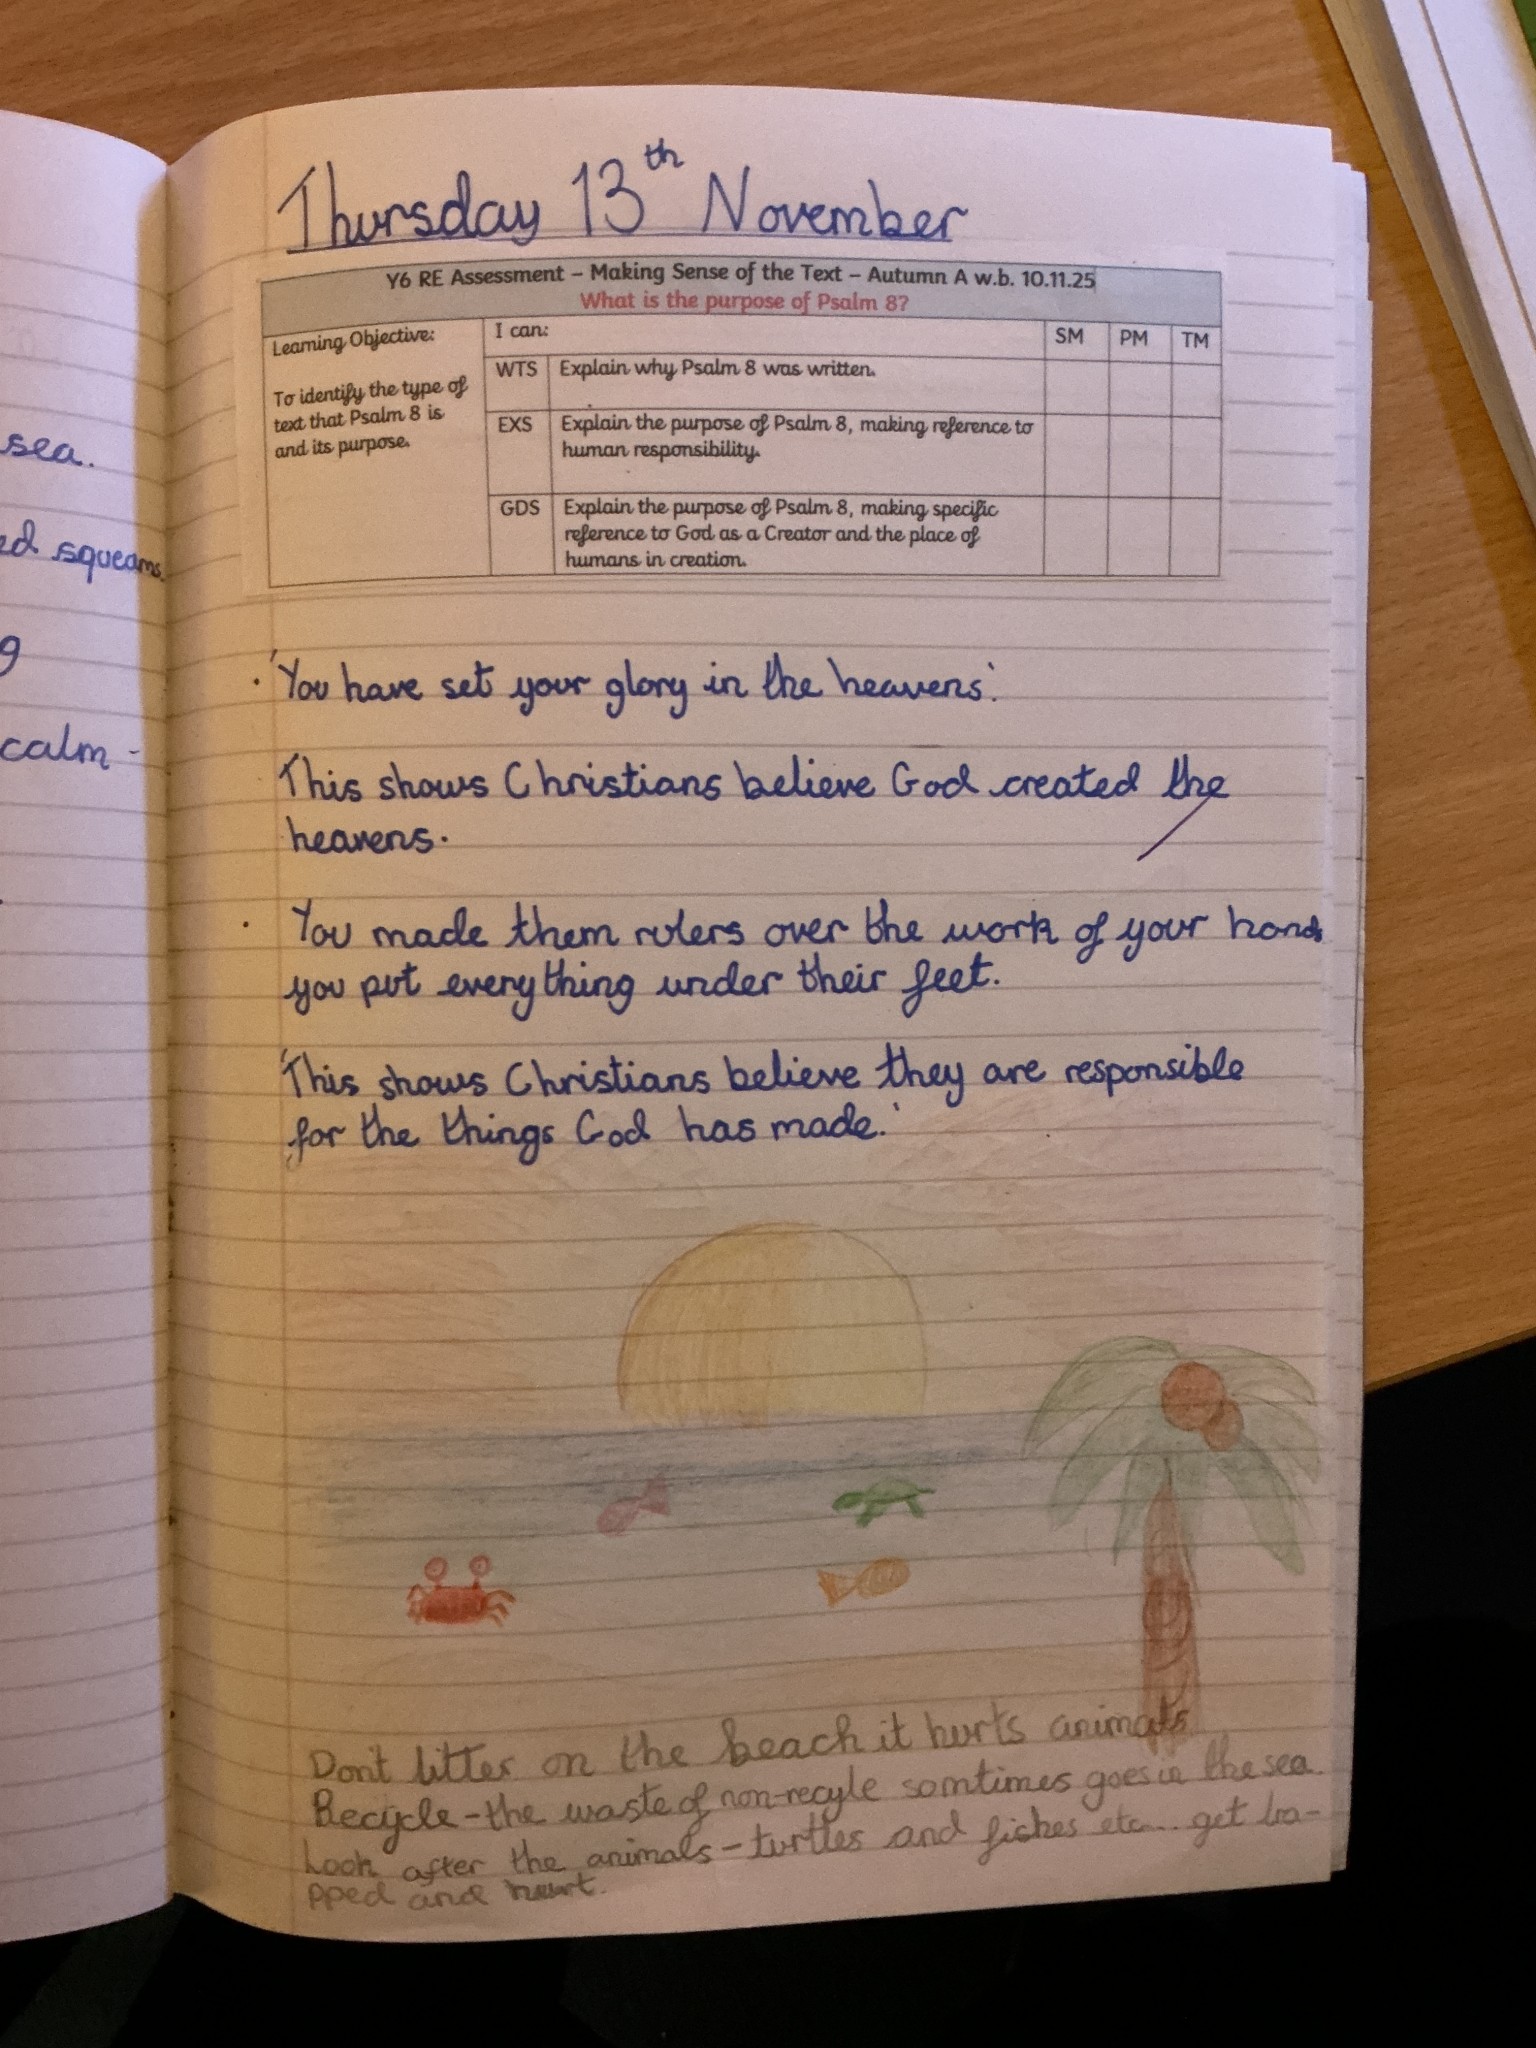 Thursday 13th November
Y6 RE Assessment – Making Sense of the Text – Autumn A w.b. 10.11.25
What is the purpose of Psalm 8?
Learning Objective:
To identify the type of
text that Psalm 8 is
and its purpose.
I can:
SM
PM
TM
WTS
Explain why Psalm 8 was written.
EXS
Explain the purpose of Psalm 8, making reference to
human responsibility.
GDS
Explain the purpose of Psalm 8, making specific
reference to God as a Creator and the place of
humans in creation.
sea.
squeams.
calm -
· 'You have set your glory in the heavens.'
This shows Christians believe God created the
heavens.
· You made them rulers over the work of your hands
you put everything under their feet.
'This shows Christians believe they are responsible
for the things God has made.'
Don't litter on the beach it hurts animals
Recycle - the waste of non-recyle somtimes goes in the sea.
Look after the animals - turtles and fishes etc... get tra-
pped and heurt.